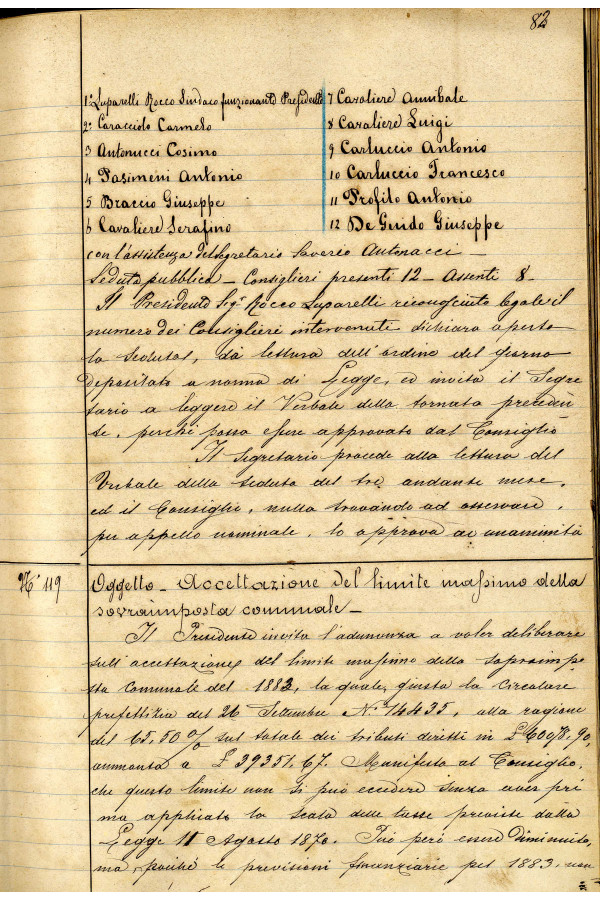 82
1º Luparelli Rocco Sindaco funzionante Presidente
2º Caracciolo Carmelo
3 Antonucci Cosimo
4 Pasimeni Antonio
5 Braccio Giuseppe
6 Cavaliere Serafino
7 Cavaliere Annibale
8 Cavaliere Luigi
9 Carluccio Antonio
10 Carluccio Francesco
11 Profilo Antonio
12 De Guido Giuseppe
con l'assistenza del Segretario Saverio Antonacci —
Seduta pubblica — Consiglieri presenti 12 — Assenti 8 —
Il Presidente Sigr Rocco Luparelli riconosciuto legale il
numero dei Consiglieri intervenuti dichiara aperta
la seduta, dà lettura dell'ordine del giorno
depositato a norma di Legge, ed invita il Segre
tario a leggere il Verbale della tornata preceden
te, perchè possa essere approvato dal Consiglio
Il Segretario procede alla lettura del
Verbale della seduta del tre andante mese,
ed il Consiglio, nulla trovando ad osservare,
per appello nominale, lo approva ad unanimità
Nº 119
Oggetto — Accettazione del limite massimo della
sovraimposta comunale —
Il Presidente invita l'adunanza a voler deliberare
sull'accettazione del limite massimo della sopraimpo
sta comunale del 1883, la quale, giusta la Circolare
prefettizia del 26 Settembre Nº 14435, alla ragione
del 65,50% sul totale dei tributi diretti in £ 60078,90,
ammonta a £ 39351,67. Manifesta al Consiglio,
che questo limite non si può eccedere senza aver pri
ma applicato la scala delle tasse previste dalla
Legge 11 Agosto 1870. Può però essere diminuito,
ma, poichè le previsioni finanziarie pel 1883, non